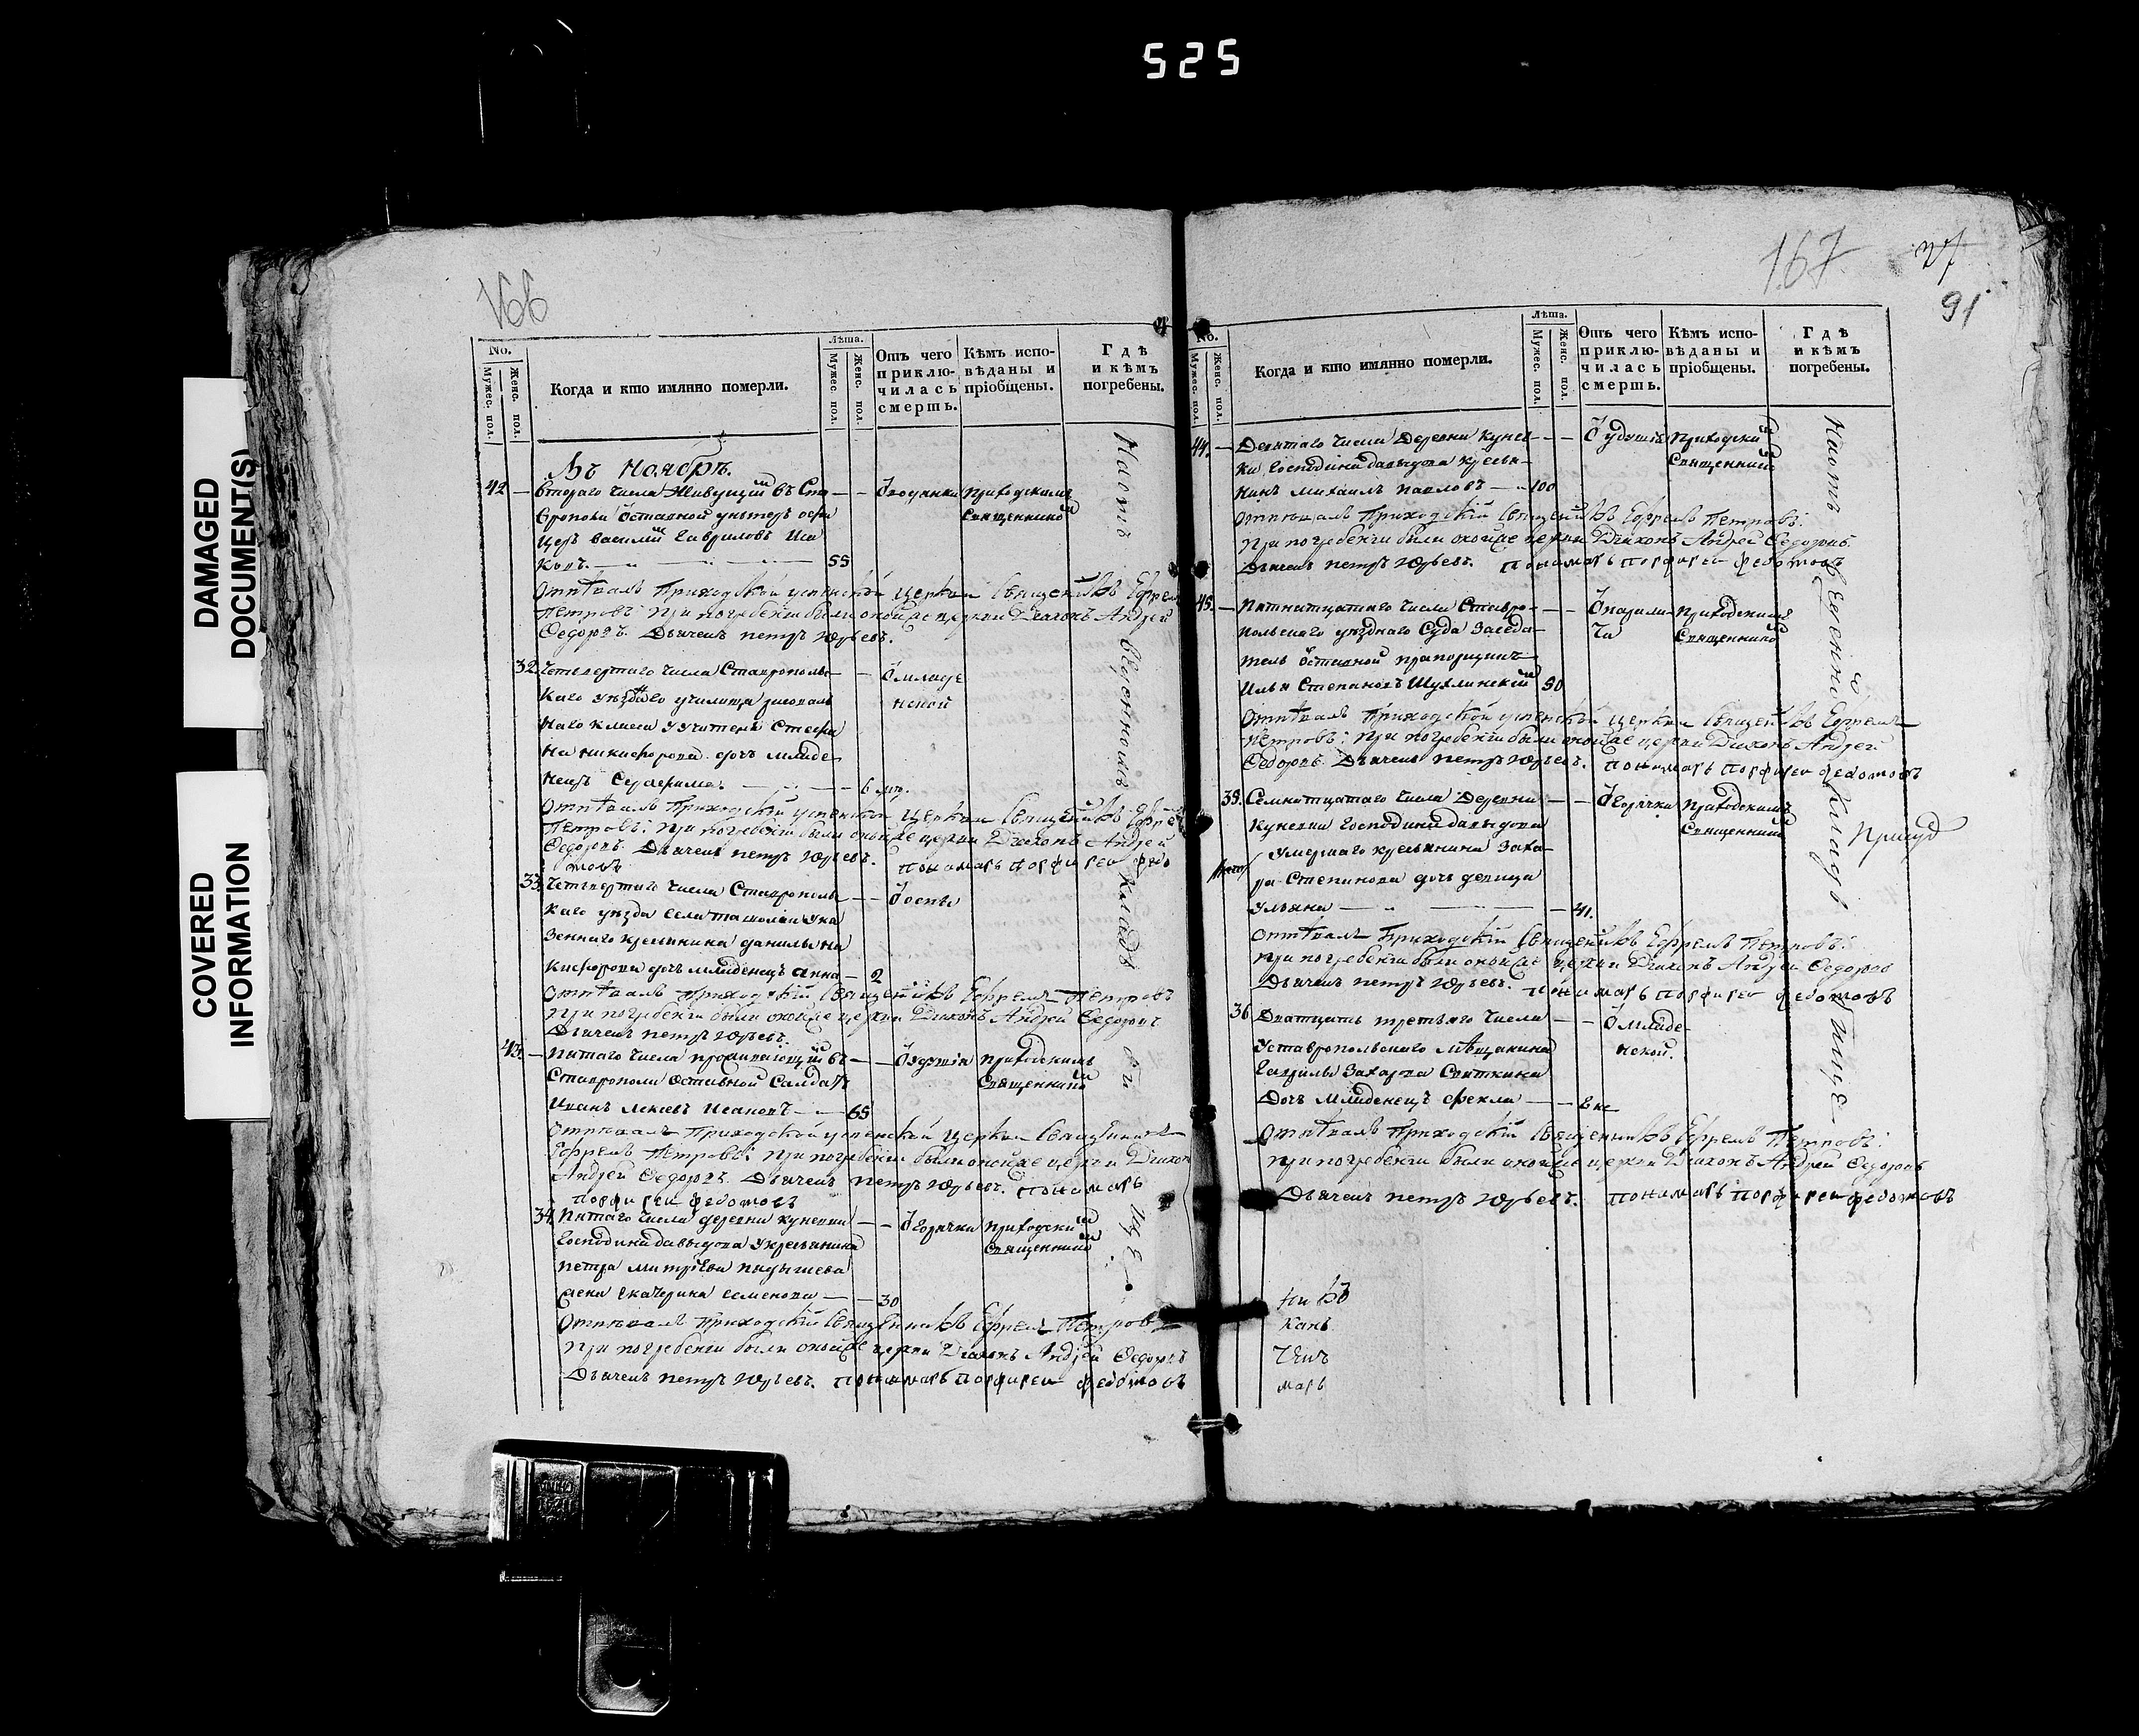 525
DAMAGED
DOCUMENT(S)
COVERED
INFORMATION
166
No.
Мужес. пол.
Женс. пол.
Когда и кто имянно померли.
Лѣта.
Мужес. пол.
Женс. пол.
Отъ чего приключилась смерть.
Кѣмъ исповѣданы и пріобщены.
Гдѣ и кѣмъ погребены.
Въ Ноябрѣ.
42 — Втораго числа Живущій въ Ста
вропови Оставной унтеръ офи
церъ Василій Гавриловъ Иса
ковъ. — 55
Приходскимъ
Священникомъ
Отпѣвалъ Приходской успенской церкви Священникъ Ефремъ
Петровъ: При погребеніи были онойже церкви Діаконъ Андрей
Ѳедоровъ. Дьячекъ петръ Юрьевъ.
32. Четвертаго числа Ставрополь
каго уѣзднаго училища
наго класса Учителя Стефа
на никифорова дочь младе
нецъ Серафима — 6 мц.
О младе
нской
Отпѣвалъ Приходскій успенской церкви Священникъ Ефре
Петровъ: При погребеніи были онойже церкви Діаконъ Андрей
Ѳедоровъ. Дьячекъ петръ Юрьевъ. пономарь порфирей федо
товъ
33. Четвертаго числа Ставрополь
каго уѣзда села ташолки Ука
зеннаго кресьянина данилы Ни
кифорова дочь младенецъ анна — 2
О оспы
Отпѣвалъ приходскій Священникъ Ефремъ Петровъ
При погребеніи были онойже церкви Діаконъ Андрей Ѳедоровъ
Дьячекъ петръ Юрьевъ.
43. — Пятаго числа проживающій въ
Ставрополи Оставной Салдатъ
Иванъ — 65
Приходскимъ
Священникомъ
Отпѣвалъ Приходской успенской церкви Священникъ
Ефремъ Петровъ: При погребеніи были онойже церкви Діаконъ
Андрей Ѳедоровъ. Дьячекъ петръ Юрьевъ. пономарь
порфирей федотовъ
34. Пятаго числа деревни кунеевки
Господина давыдова Укресьянина
петра митрѣева
жена екатерина семенова — 30
О Горячки
Приходским
Священником
Отпѣвалъ Приходскій Священникъ Ефремъ Петровъ
При погребеніи были онойже церкви Діаконъ Андрей Ѳедоровъ
Дьячекъ петръ Юрьевъ. пономарь порфиреи федотовъ
На отъ веденномъ кладбищѣ.
167
91
No.
Мужес. пол.
Женс. пол.
Когда и кто имянно померли.
Лѣта.
Мужес. пол.
Женс. пол.
Отъ чего приключилась смерть.
Кѣмъ исповѣданы и пріобщены.
Гдѣ и кѣмъ погребены.
44. — Девятаго числа Деревни кунеев
ки Господина давыдова кресья
нинъ михаилъ павловъ — 100
О удушья
Приходским
Священником
Отпѣвалъ Приходскій Священникъ Ефремъ Петровъ:
При погребеніи были онойже церкви Діаконъ Андрей Ѳедоровъ.
Дьячекъ петръ Юрьевъ. пономарь порфиреи федотовъ
45. — Пятнатцатаго числа Ставро
польскаго уѣзднаго Суда Заседа
тель Оставной прапорщикъ
Илья Степановъ 50
О парали
ча
Приходскимъ
Священникомъ
Отпѣвалъ Приходской успенской церкви Священникъ Ефремъ
Петровъ: При погребеніи были онойже церкви Діаконъ Андрей
Ѳедоровъ. Дьячекъ петръ Юрьевъ. пономарь порфиреи федотовъ
35. Семнатцатаго числа Деревни
кунеевки Господина давыдова
Умершаго кресьянина Заха
ра Степанова дочь девица
Ульяна — 41.
О Горячки
Приходскимъ
Священником
Отпѣвалъ Приходскій Священникъ Ефремъ Петровъ:
При погребеніи были онойже церкви Діаконъ Андрей Ѳедоровъ
Дьячекъ петръ Юрьевъ. пономарь порфиреи федотовъ
36 Дватцать третьяго числа
Уставропольскаго мѣщанина
Гаврилы Захарова Святкина
Дочь младенецъ фекла — 8 не
О младе
нской.
Отпѣвалъ Приходскій Священникъ Ефремъ Петровъ:
При погребеніи были онойже церкви Діаконъ Андрей Ѳедоровъ
Дьячекъ петръ Юрьевъ. пономарь порфиреи федотовъ
На отъ веденной кладбищѣ
никъ
канъ
чекъ
марь